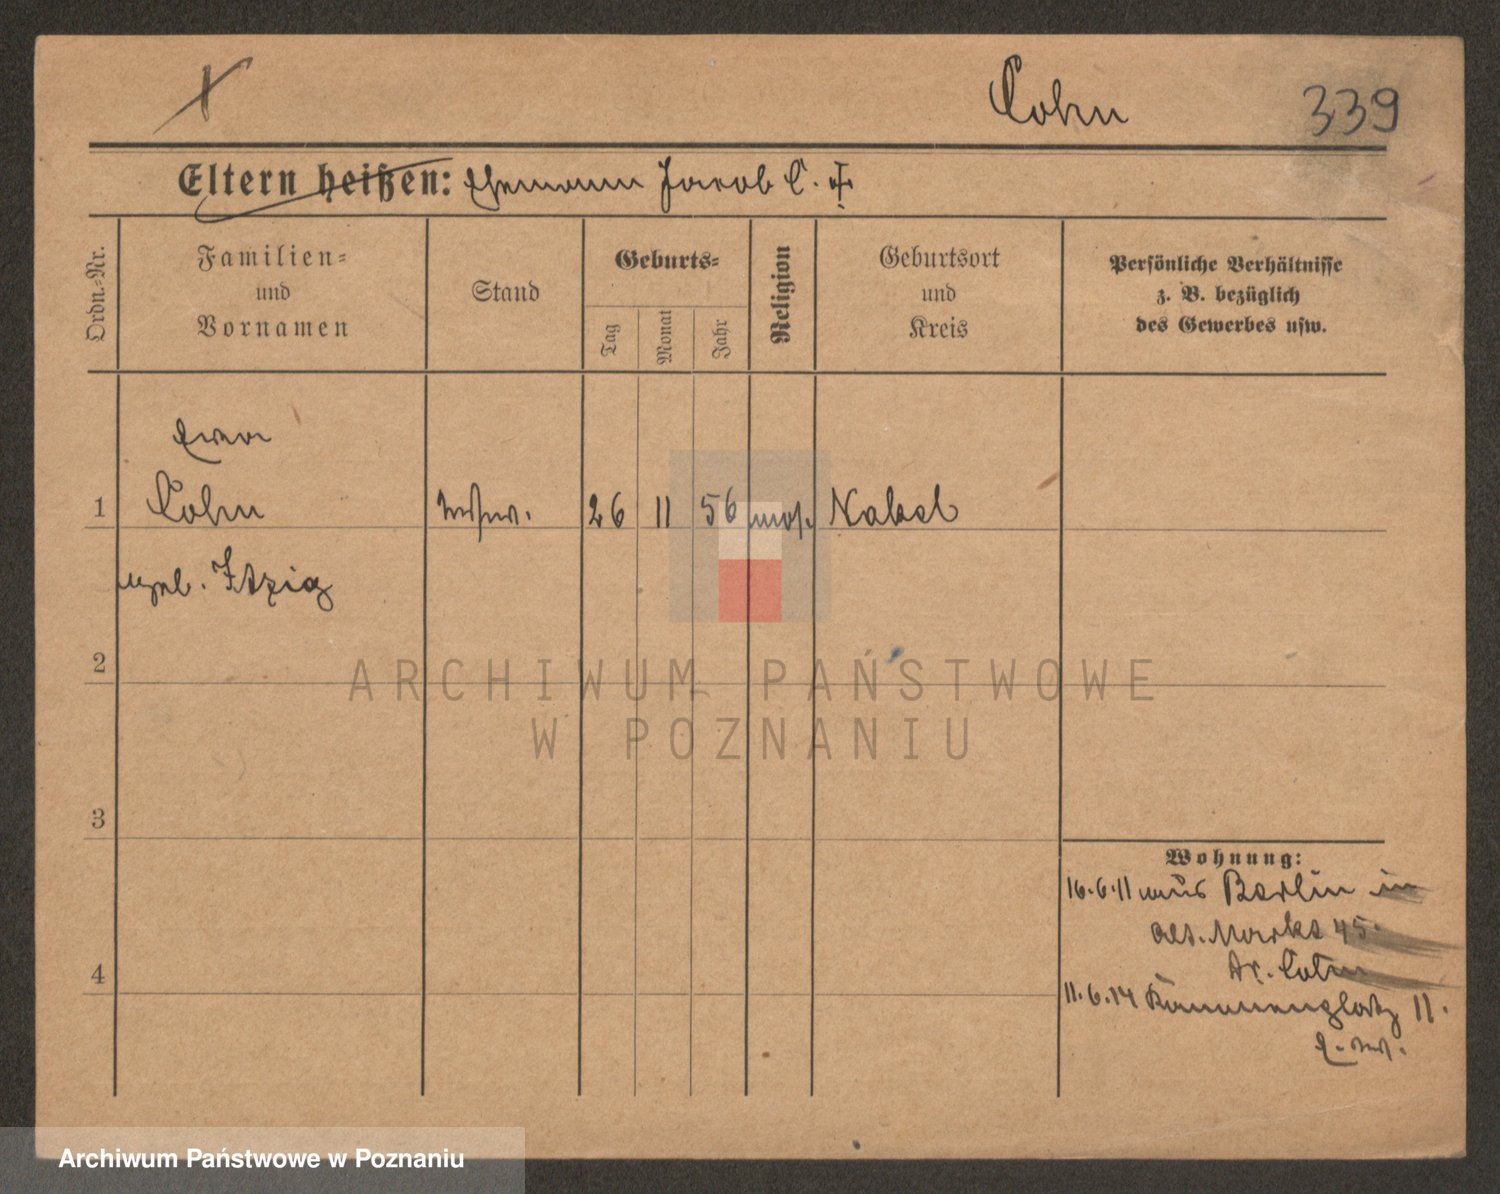 Cohn
339
Eltern heißen: Ehemann Jacob C. ‡
Ordn.-Nr.
Familien-
und
Vornamen
Stand
Geburts-
Tag
Monat
Jahr
Religion
Geburtsort
und
Kreis
Persönliche Verhältnisse
z. B. bezüglich
des Gewerbes usw.
1 Cohn 26 11 56 mos. Nakel
geb. Itzig
2
3
4
Wohnung:
16.6.11 aus Berlin in
Alt. Markt 45.
Cohn
11.6.14 11.
ARCHIWUM PAŃSTWOWE
W POZNANIU
Archiwum Państwowe w Poznaniu